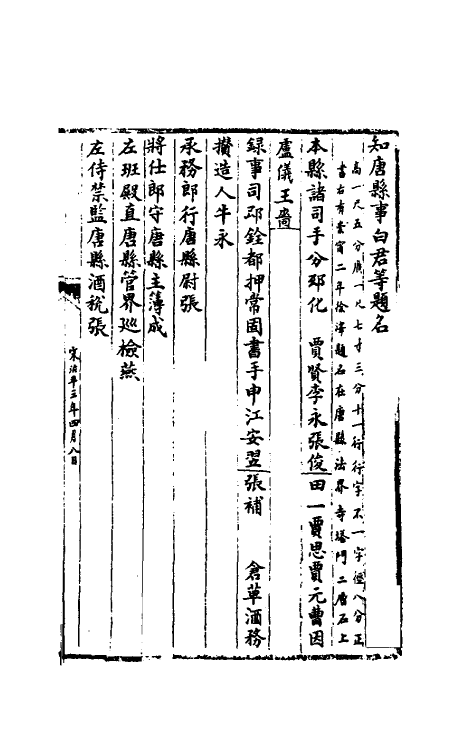 知唐縣事白君等題名
高一尺五分廣一尺七寸三分十一行行字不一字徑八分正
書右有崇甯二年徐澤題名在唐縣法界寺塔門二層石上
本縣諸司手分邳化 賈賢李永張俊田一賈思賈元曹因
盧儀王嗇
録事司邳銓都押常固書手申江安翌張補 倉草酒務
攢造人牛永
承務郎行唐縣尉張
將仕郎守唐縣主簿成
左班殿直唐縣管界巡檢燕
左侍禁監唐縣酒稅張
宋治平三年四月八日